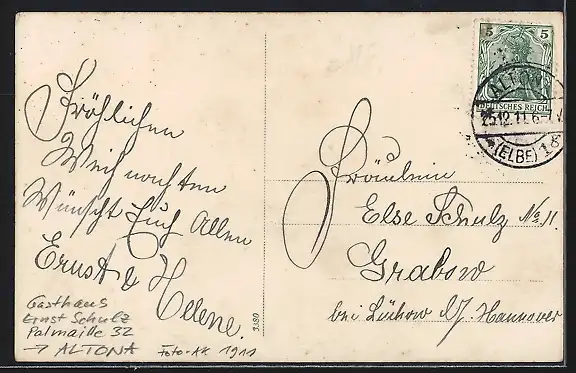 Fröhlichen
Weihnachten
Wünscht Euch Allen
Ernst & Helene.
Gasthaus
Ernst Schulz
Palmaille 32
→ ALTONA Foto-AK 1911
3380
5 5
DEUTSCHES REICH
ALTONA
25.12.11. 6-7 V.
* (ELBE) 18
Fräulein
Else Schulz No. 11.
Grabow
bei Lüchow i/ Hannover